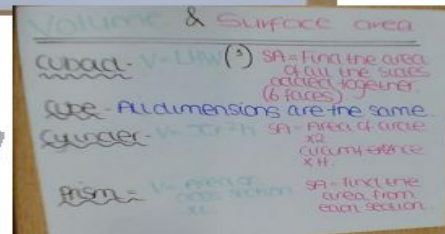 Volume & Surface area
Cuboid - V=LHW (³) SA = Find the area
of all the sides
added together.
(6 faces)
Cube - All dimensions are the same.
Cylinder - V= r²h SA - Area of circle
x2
circumference
x H.
Prism = V= Area of
cross section
x L
SA - find the
area from
each section.